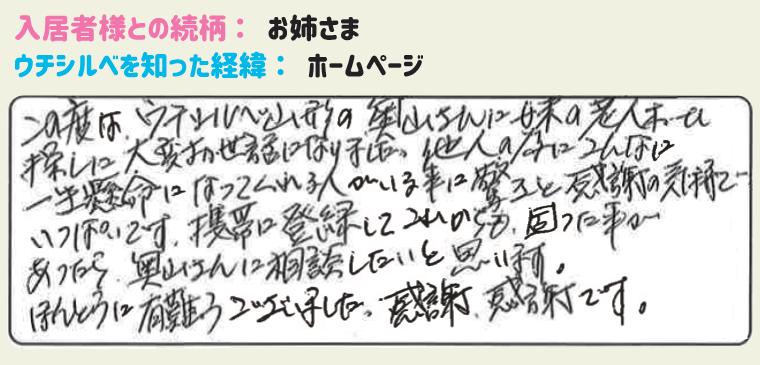 入居者様との続柄： お姉さま
ウチシルベを知った経緯： ホームページ
この度は、ウチシルベ山形の奥山さんに妹の老人ホーム
探しに大変お世話になりました。他人の為にこんなに
一生懸命になってくれる人がいる事に驚ろきと感謝の気持で
いっぱいです。携帯に登録してこれからも、困った事が
あったら、奥山さんに相談したいと思います。
ほんとうに有難うございました。感謝、感謝です。